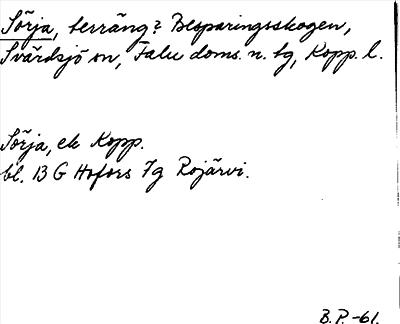 Sörja, terräng? Besparingsskogen,
Svärdsjö sn, Falu doms. n. tg, Kopp. l.
Sörja, ek Kopp.
bl. 13 G Hofors 7g Rojärvi.
B.P.-61.